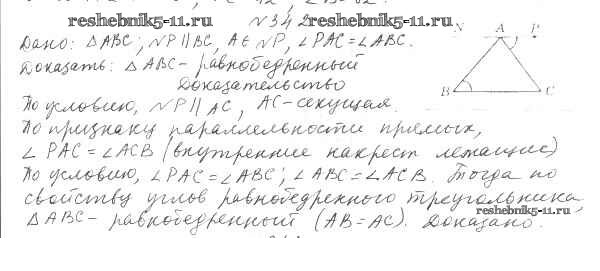 reshebnik5-11.ru
№342
Дано: △ABC; NP∥BC, A∈NP, ∠PAC=∠ABC.
Доказать: △ABC-равнобедренный
Доказательство
По условию, NP∥AC, AC-секущая.
По признаку параллельности прямых,
∠PAC=∠ACB (внутренние накрест лежащие)
По условию, ∠PAC=∠ABC; ∠ABC=∠ACB. Тогда по
свойству углов равнобедренного треугольника,
△ABC-равнобедренный (AB=AC). Доказано.
N A P
B C
reshebnik5-11.ru